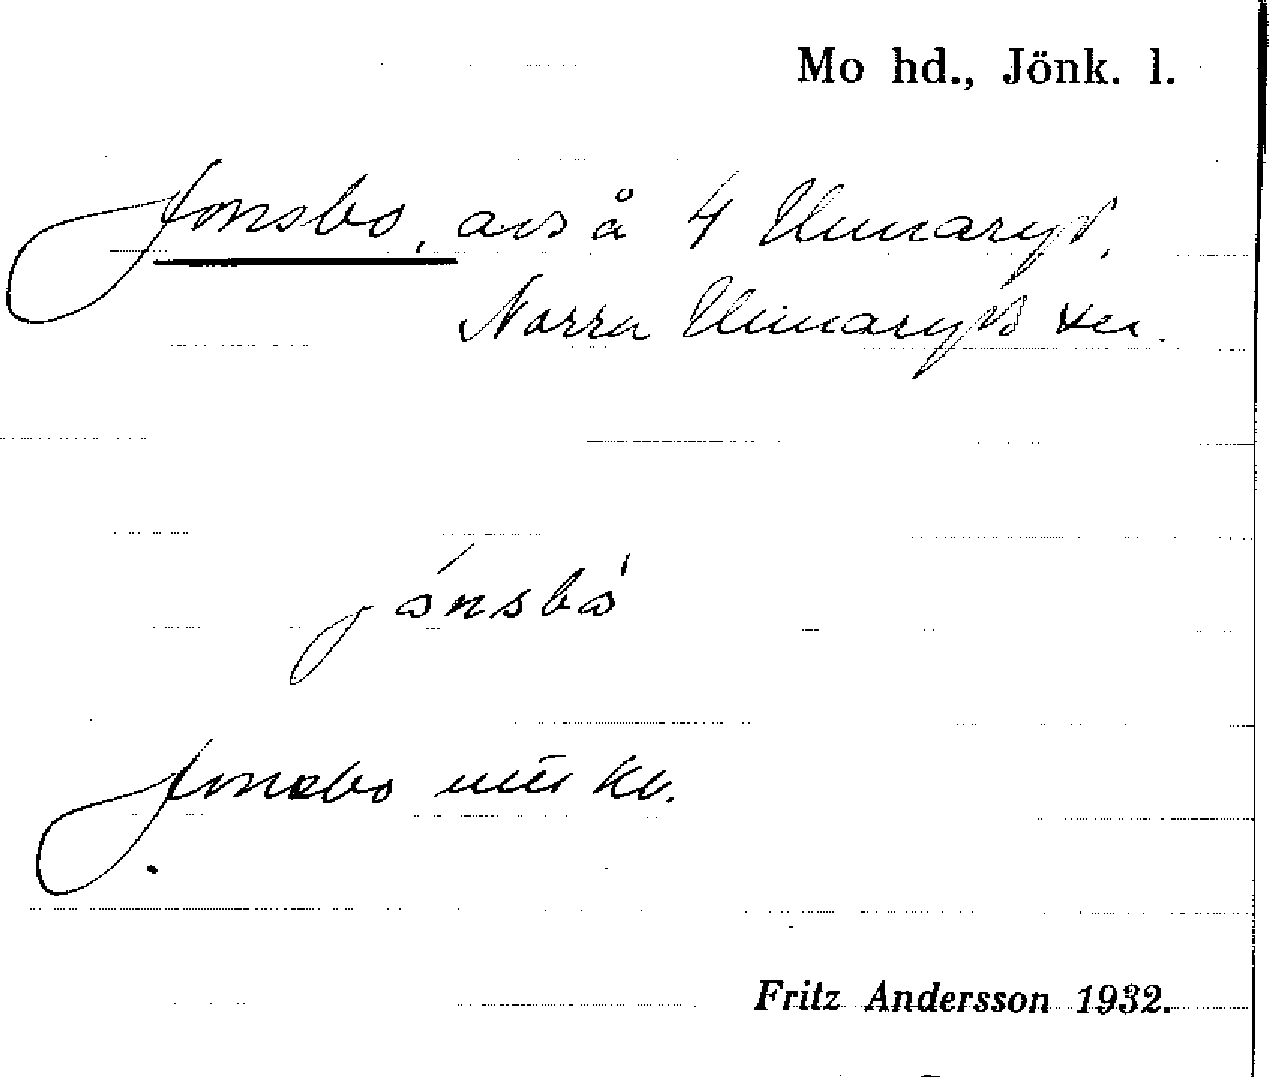 Mo hd., Jönk. l.
Jonsbo, avs å 4 Unnaryd,
Norra Unnaryds sn.
jónsbó
Jonsbo
Fritz Andersson 1932.